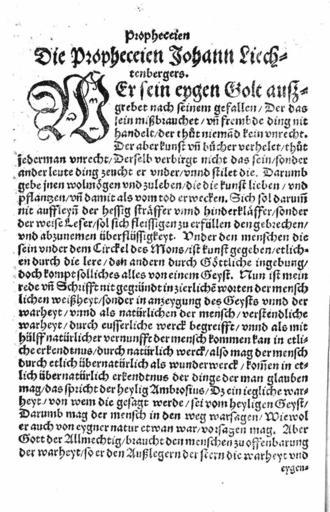 Propheceien
Die Propheceien Johann Liech-
tenbergers.
WEr sein eygen Golt auß-
grebet nach seinem gefallen / Der das
sein mißbrauchet / vñ frembde ding nit
handelt / der thůt niemãd kein vnrecht.
Der aber kunst vñ bücher verhelet / thůt
jederman vnrecht / Derselb verbirgt nicht das sein / sonder
ander leute ding zeucht er vnder / vnnd stilet die. Darumb
gebe jnen wolmögen vnd zuleben / die die kunst lieben / vnd
pflantzen / vñ damit als vom tod erwecken. Sich sol darum̃
nit auffleyñ der hessig sträffer vnnd hinderkläffer / sonder
der weise Leser / sol sich fleissigen zu erfüllen den gebrechen /
vnd abzunemen überflüssigkeyt. Vnder den menschen die
sein vnder dem Circkel des Mons / ist kunst gegeben / etlich-
en durch die lere / den andern durch Göttliche ingebung /
doch kompt solliches alles von einem Geyst. Nun ist mein
rede vñ Schrifft nit gegründt in zierlichẽ worten der mensch
lichen weißheyt / sonder in anzeygung des Geysts vnnd der
warheyt / vnnd als natürlichen der mensch / verstendliche
warheyt / durch eusserliche werck begreifft / vnnd als mit
hülff natürlicher vernunfft der mensch kommen kan in etli-
che erkendtnus / durch natürlich werck / also mag der mensch
durch etlich übernatürlich als wunderwerck / kom̃en in et-
lich übernatürlich erkendtnus der dinge der man glauben
mag / das spricht der heylig Ambrosius / Ein iegliche war-
heyt / von wem die gesagt werde / sei vom heyligen Geyst /
Darumb mag der mensch in den weg warsagen / Wiewol
er auch von eygner natur etwan war / vorsagen mag. Aber
Gott der Allmechtig / braucht den menschen zu offenbarung
der warheyt / so er den Außlegern der stern die warheyt vnd
eygen-